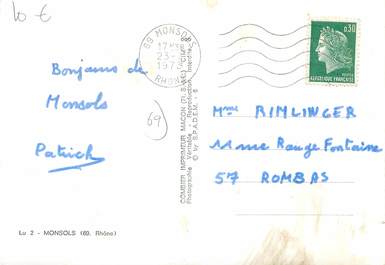 10 €
69 MONSOLS
17H
23-
1973
RHONE
0,30
REPUBLIQUE FRANÇAISE
Bonjours de
Monsols
Patrick
69
COMBIER IMPRIMEUR MACON (71. S.-et-L.) "CIM"
Photographie Véritable - Reproduction Interdite
© by S.P.A.D.E.M.
Mme RIMLINGER
Mme Rouge Fontaine
57 ROMBAS
Lu 2 - MONSOLS (69. Rhône)